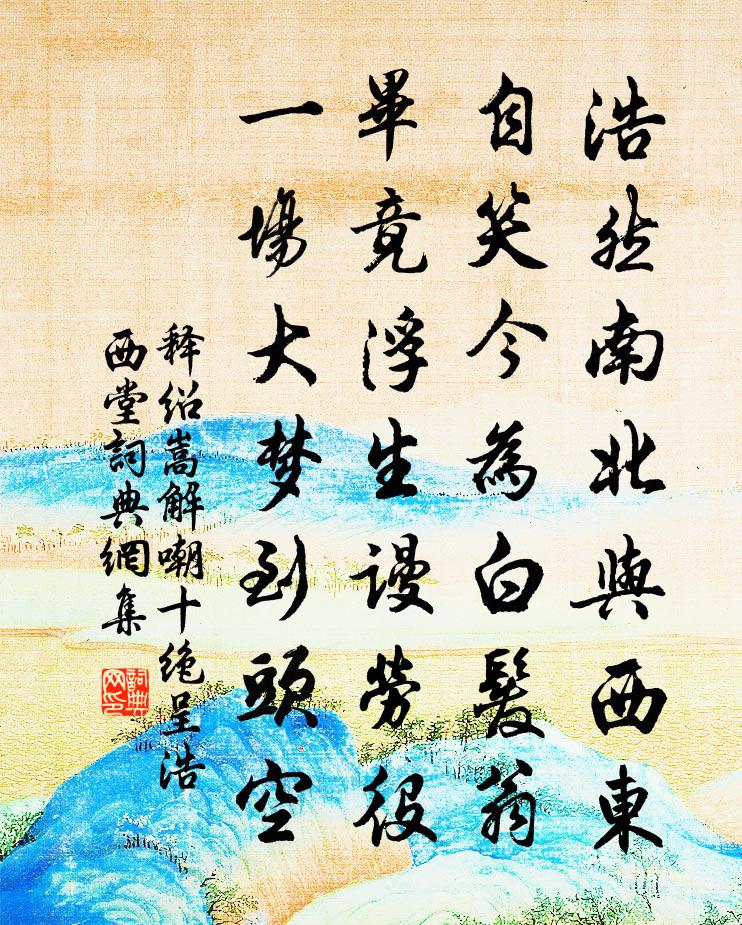 浩然南北與西東
自笑今為白髮翁
畢竟浮生謾勞役
一場大梦到頭空
释绍嵩解嘲十绝呈浩
西堂詞典網集
詞典
网印